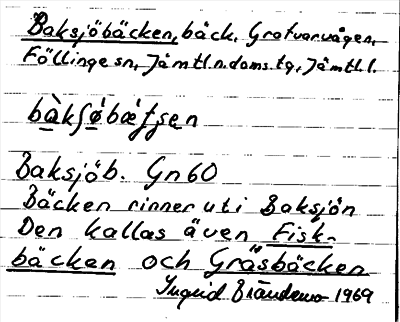 Baksjöbäcken, bäck, Grotvarvågen,
Föllinge sn, Jämtl.n.doms.tg, Jämtl.l.
bàkʃø̀bæ̀tʃen
Baksjöb. Gn60
Bäcken rinner uti Baksjön
Den kallas även Fisk-
bäcken och Gräsbäcken
Ingrid Brändemo 1969